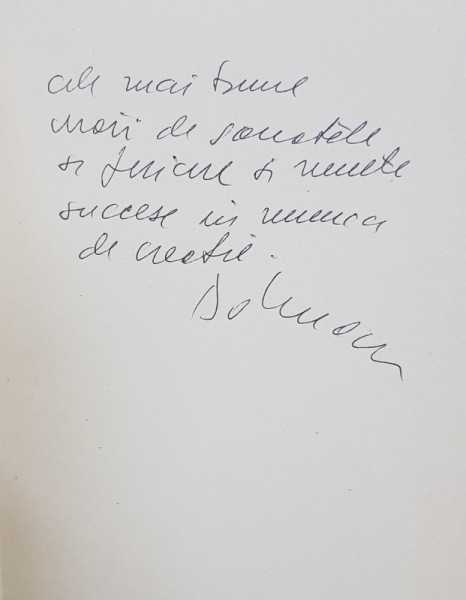 cele mai bune
urări de sănătate
si fericire si multe
succese in munca
de creatie.